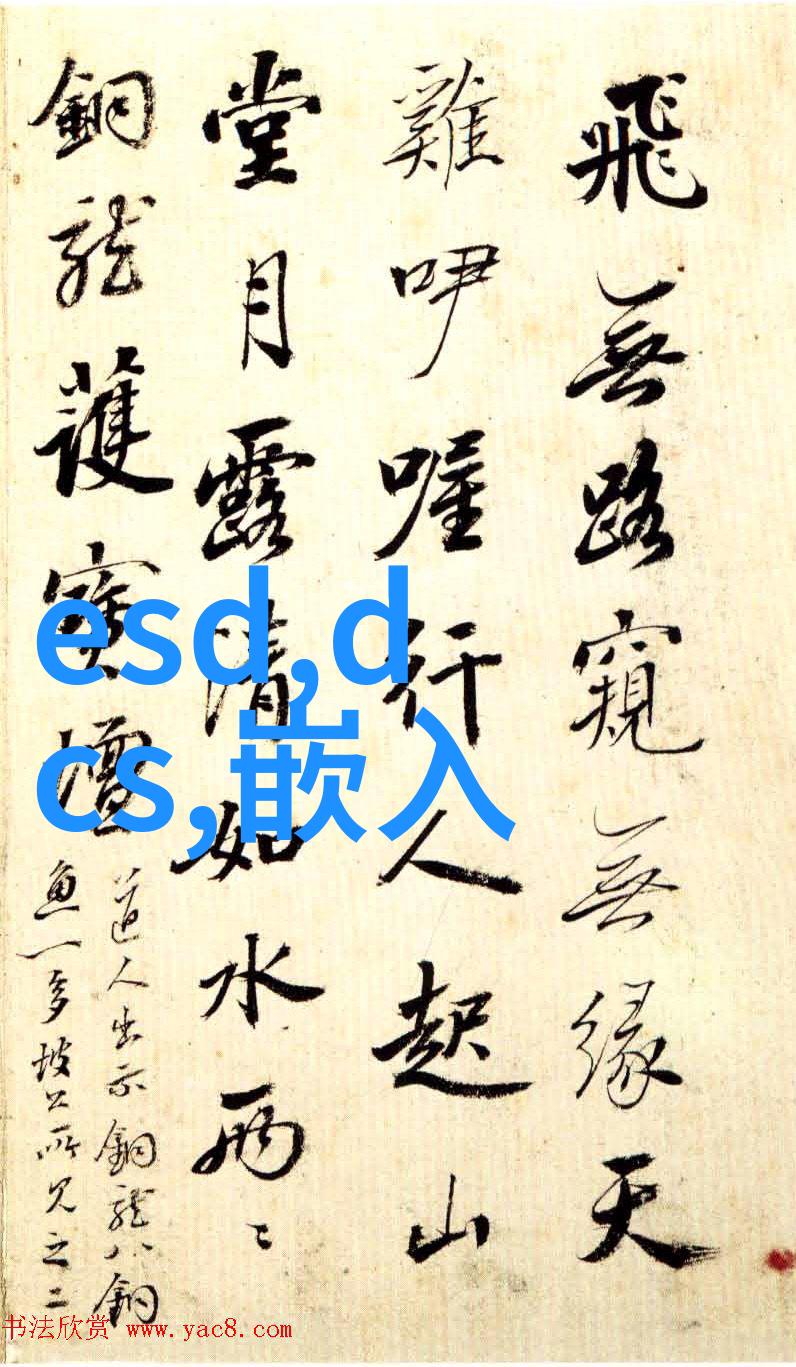 飛無路窺無緣天
雞咿喔行人起山
堂月露清如水兩〻
銅龍護寶壇
道人出示銅龍八銅
魚一多坡公所見之二
esd,d
cs,嵌入
书法欣赏 www.yac8.com